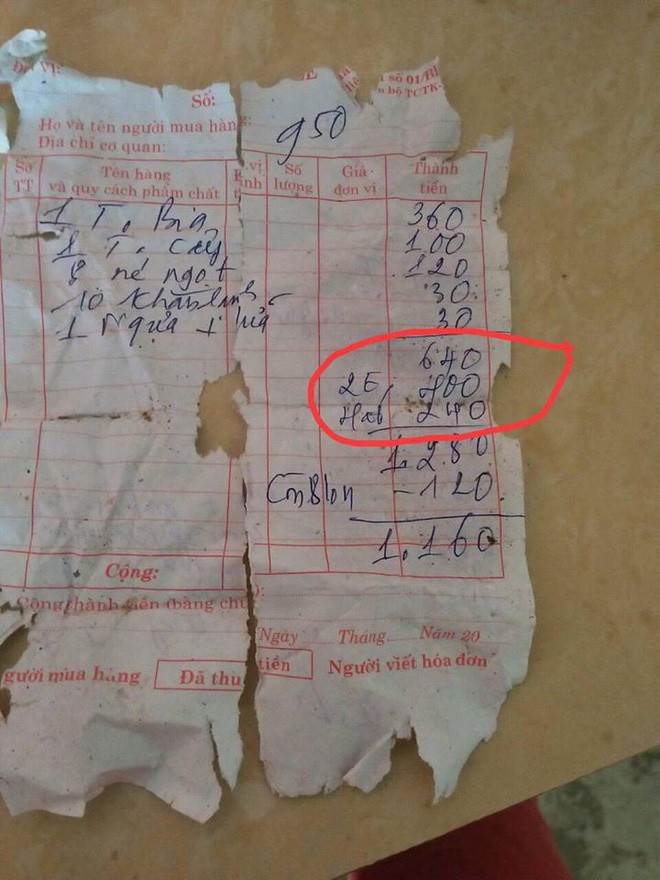 Đơn vị:
số 01/BL
bộ TCTK-
Số:
Họ và tên người mua hàng:
950
Địa chỉ cơ quan:
Số TT
Tên hàng và quy cách phẩm chất
Số lượng
Giá đơn vị
Thành tiền
1 T. Bia 360
1 T. 100
8 né ngọt 120
10 Khăn lạnh 30
1 30
640
2E 400
240
1.280
-120
1.160
Cộng:
Cộng thành tiền (bằng chữ):
Ngày Tháng Năm 20
gười mua hàng Đã thu tiền Người viết hóa đơn